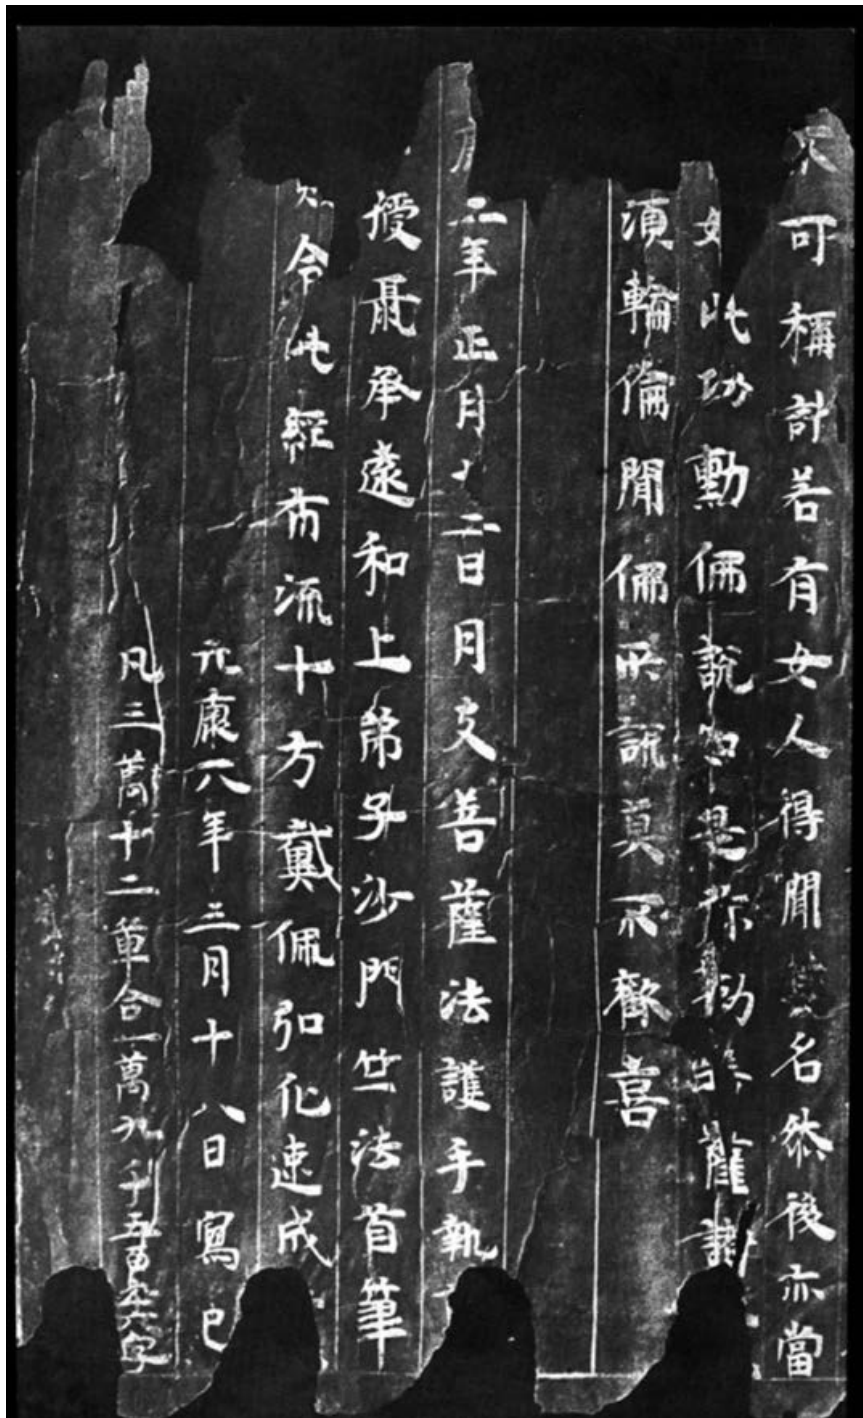 不可稱計若有女人得聞其名然後亦當
如此功勳佛說如是弥勒薩諸
須輪倫聞佛所說莫不歡喜
二年正月十二日月支菩薩法護手執
授聶承遠和上弟子沙門竺法首筆
令此經布流十方戴佩弘化速成
元康六年三月十八日寫已
凡三萬十二章合一萬九千五百九十六字